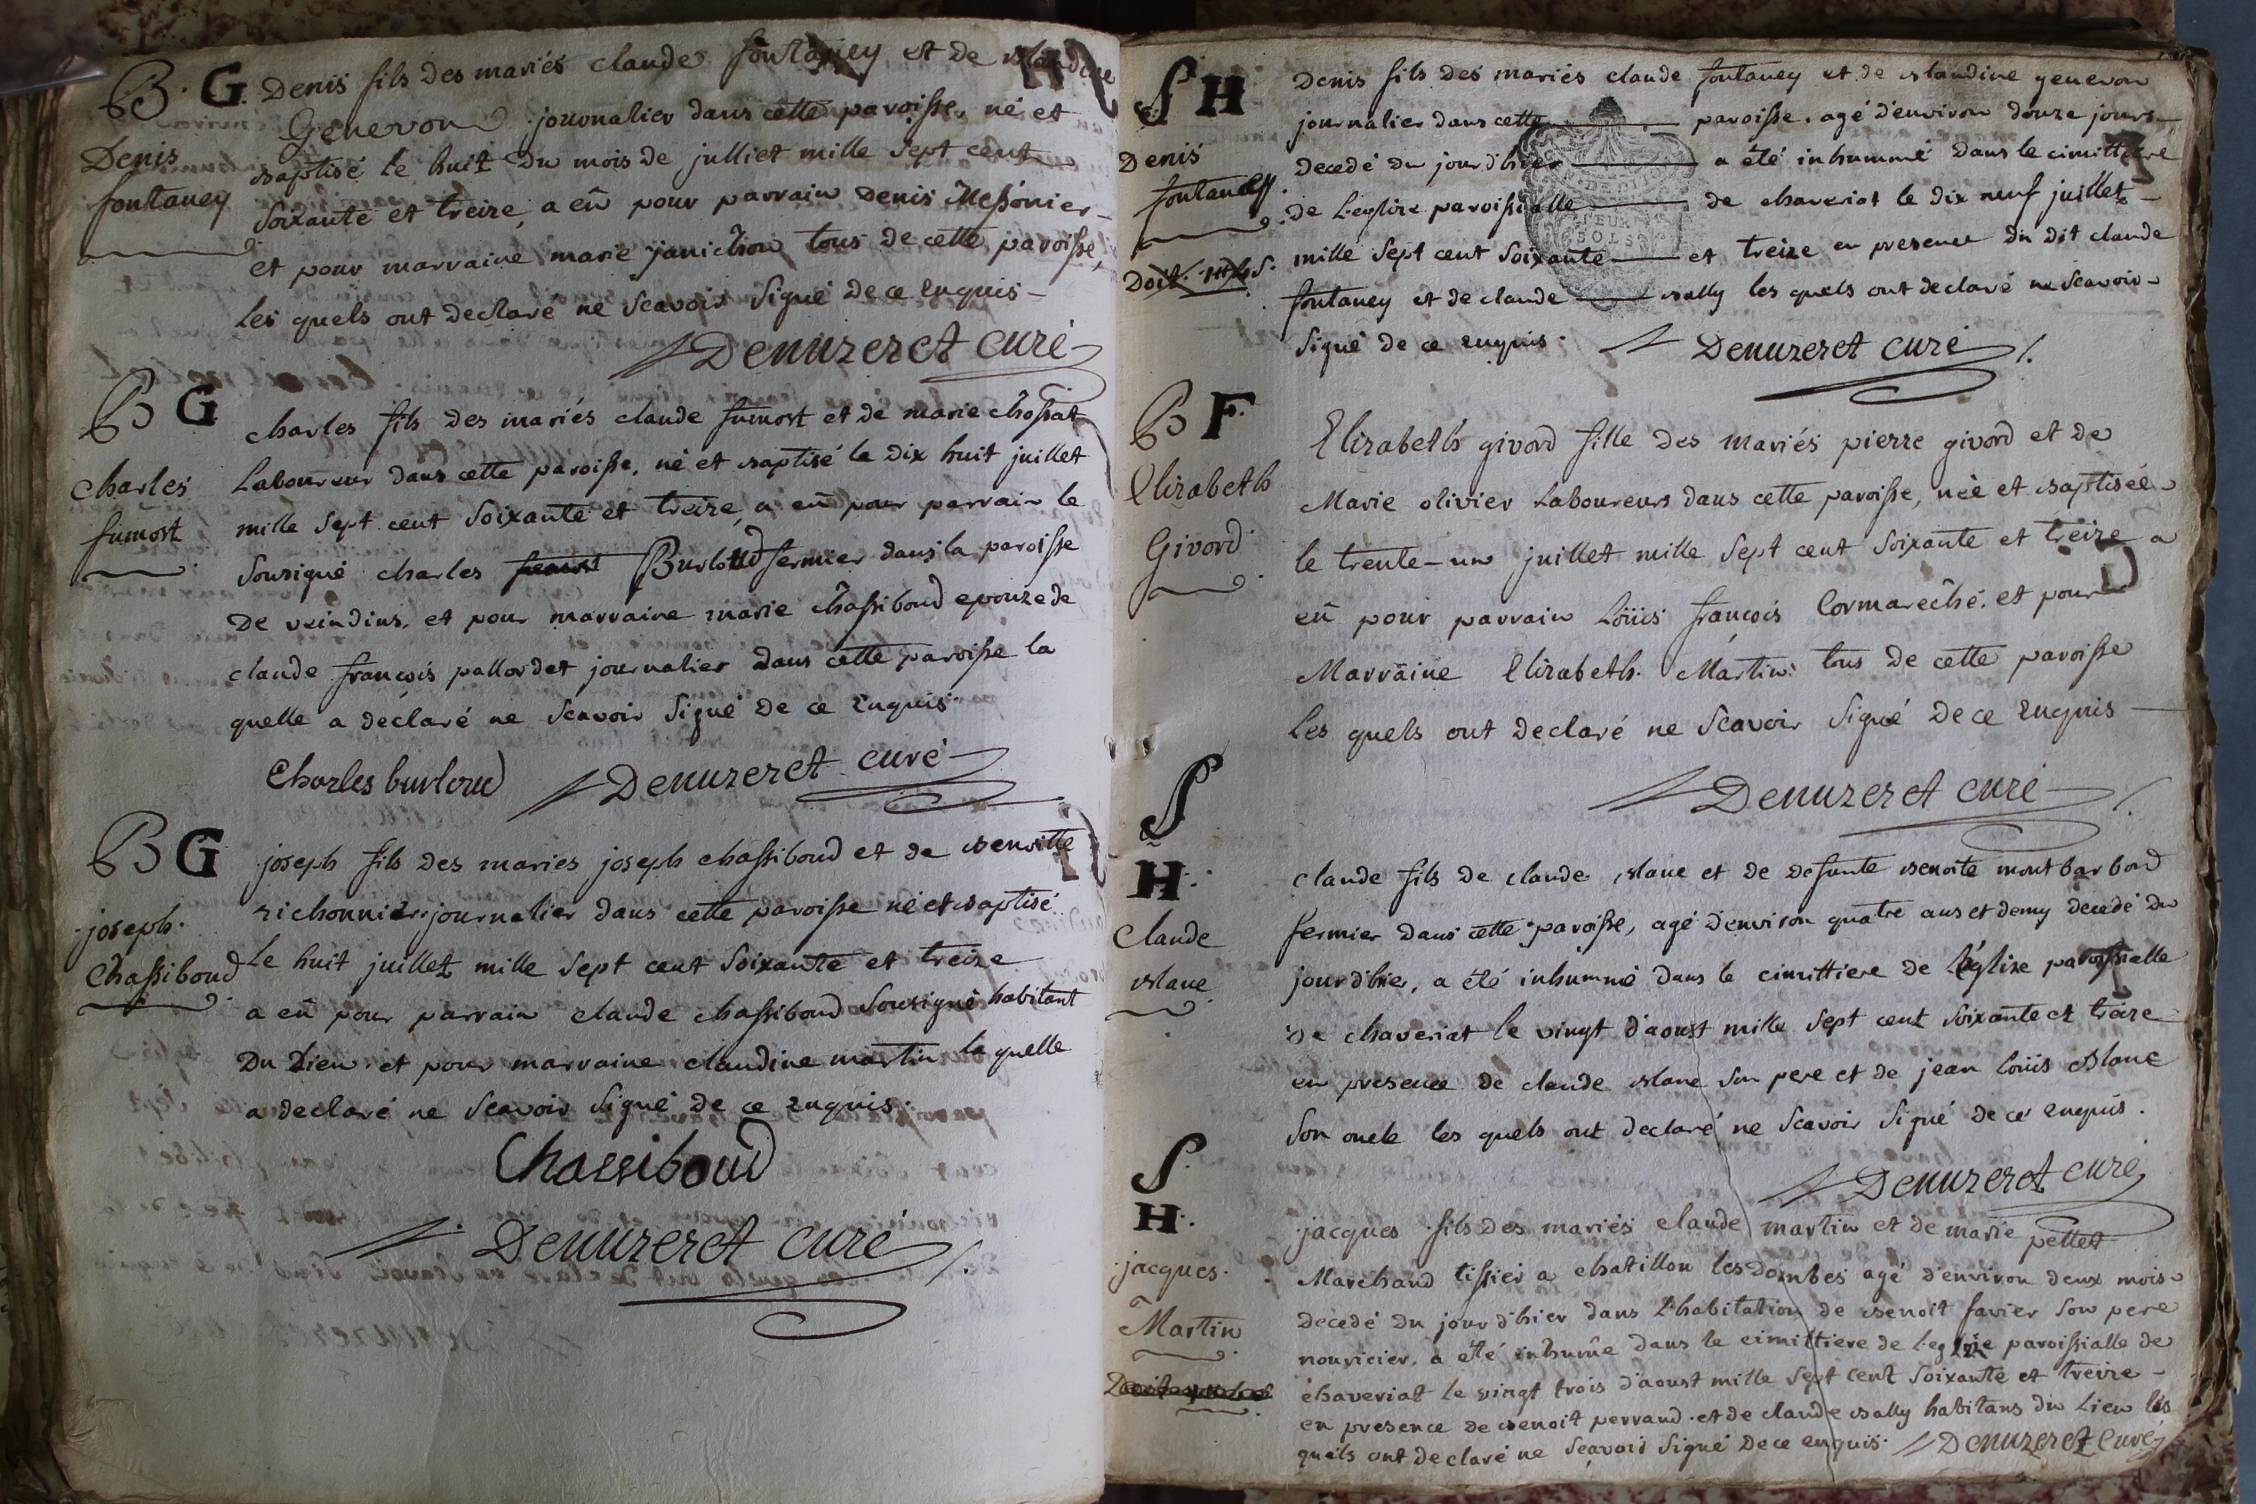 B. G.
Denis
fontaney
Denis fils des mariés claude fontaney et de blandine
Generon journalier dans cette paroisse, né et
baptisé le huit du mois de julliet mille sept cent
soixante et treize, a eû pour parrain denis Messonier
et pour marraine marie janichon tous de cette paroisse,
les quels ont declaré ne scavoir signé de ce enquis
Denuzeret curé
B G
charles
fumort
charles fils des mariés claude fumort et de marie chossat
Laboureur dans cette paroisse, né et baptisé le dix huit juillet
mille sept cent soixante et treize, a eû pour parrain le
sousigné charles Burloud fermier dans la paroisse
de veindins, et pour marraine marie chassiboud epouze de
claude françois pallordet journalier dans cette paroisse la
quelle a declaré ne scavoir signé de ce enquis.
Charles burloud Denuzeret curé
B G
joseph
Chassiboud
joseph fils des mariés joseph chassiboud et de benoitte
richonnier journalier dans cette paroisse né et baptisé
Le huit juillet mille sept cent soixante et treize
a eû pour parrain claude chassiboud sousigné habitant
du Lieu, et pour marraine claudine martin la quelle
a declaré ne scavoir signé de ce enquis.
Chassiboud
Denuzeret curé
S H
Denis
fontaney
Denis fils des mariés claude fontaney et de blandine generon
journalier dans cette paroisse, agé d'environ douze jours
decedé du jour d'hier a été inhummé dans le cimittiere
de L'eglize paroissialle de chaveriat le dix neuf juillet
mille sept cent soixante et treize en presence du dit claude
fontaney et de claude bally les quels ont declaré ne scavoir
signé de ce enquis. Denuzeret curé
B F
Elizabeth
Givord
Elizabeth givord fille des mariés pierre givord et de
Marie olivier Laboureurs dans cette paroisse, née et baptisée
le trente-un juillet mille sept cent soixante et treize a
eû pour parrain Loüis françois Cormareché, et pour
Marraine Elizabeth Martin tous de cette paroisse
Les quels ont declaré ne scavoir signé de ce enquis
Denuzeret curé
S
H
Claude
blanc
claude fils de claude blanc et de defunte benoite montbarbond
fermier dans cette paroisse, agé d'environ quatre ans et demy decedé du
jour d'hier, a été inhummé dans le cimittiere de L'églize paroissialle
de chaveriat le vingt d'aoust mille sept cent soixante et treize
en presence de claude blanc son pere et de jean Loüis Blanc
son oncle les quels ont declaré ne scavoir signé de ce enquis.
Denuzeret curé
S
H
jacques
Martin
jacques fils des mariés claude martin et de marie pettet
Marchand tissier a chatillon les dombes agé d'environ deux mois
decedé du jour d'hier dans L'habitation de benoit favier son pere
nouricier, a été inhumé dans le cimittiere de L'eglize paroissialle de
chaveriat le vingt trois d'aoust mille sept cent soixante et treize
en presence de benoit perraud et de claude bally habitans du Lieu les
quels ont declaré ne scavoir signé de ce enquis. Denuzeret curé